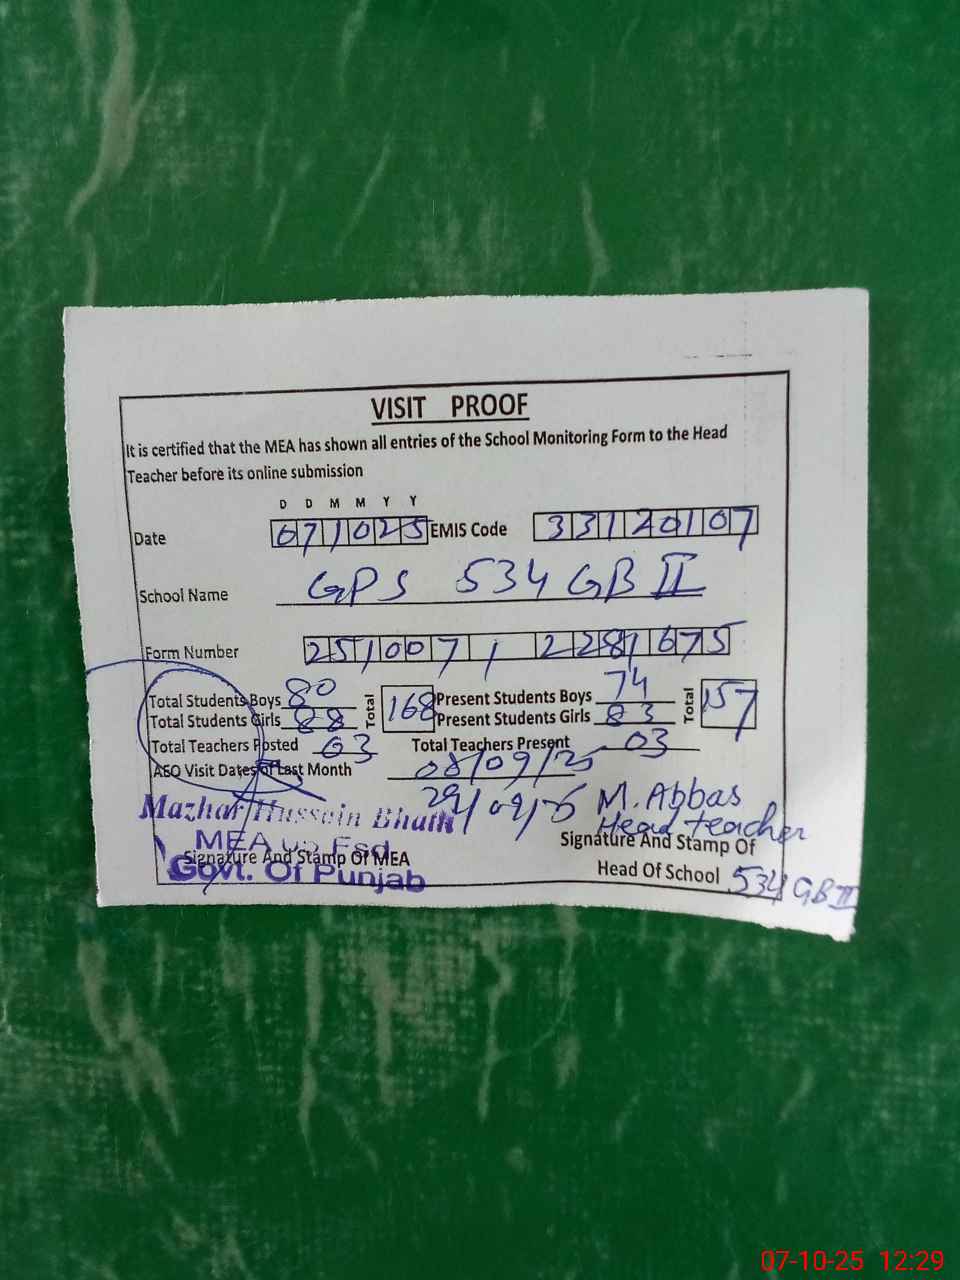 VISIT PROOF
It is certified that the MEA has shown all entries of the School Monitoring Form to the Head
Teacher before its online submission
D D M M Y Y
Date 071025 EMIS Code 33120107
School Name GPS 534 GB II
Form Number 2510071 2281675
Total Students Boys 80 Total 168 Present Students Boys 74 Total 157
Total Students Girls 88 Present Students Girls 83
Total Teachers Posted 03 Total Teachers Present 03
AEO Visit Dates of Last Month 08/09/25
29/09/25 M. Abbas
Mazhar Hussain Bhatti Head teacher
MEA Fsd
Signature And Stamp Of MEA Signature And Stamp Of
Govt. Of Punjab Head Of School 534 GB II
07-10-25 12:29